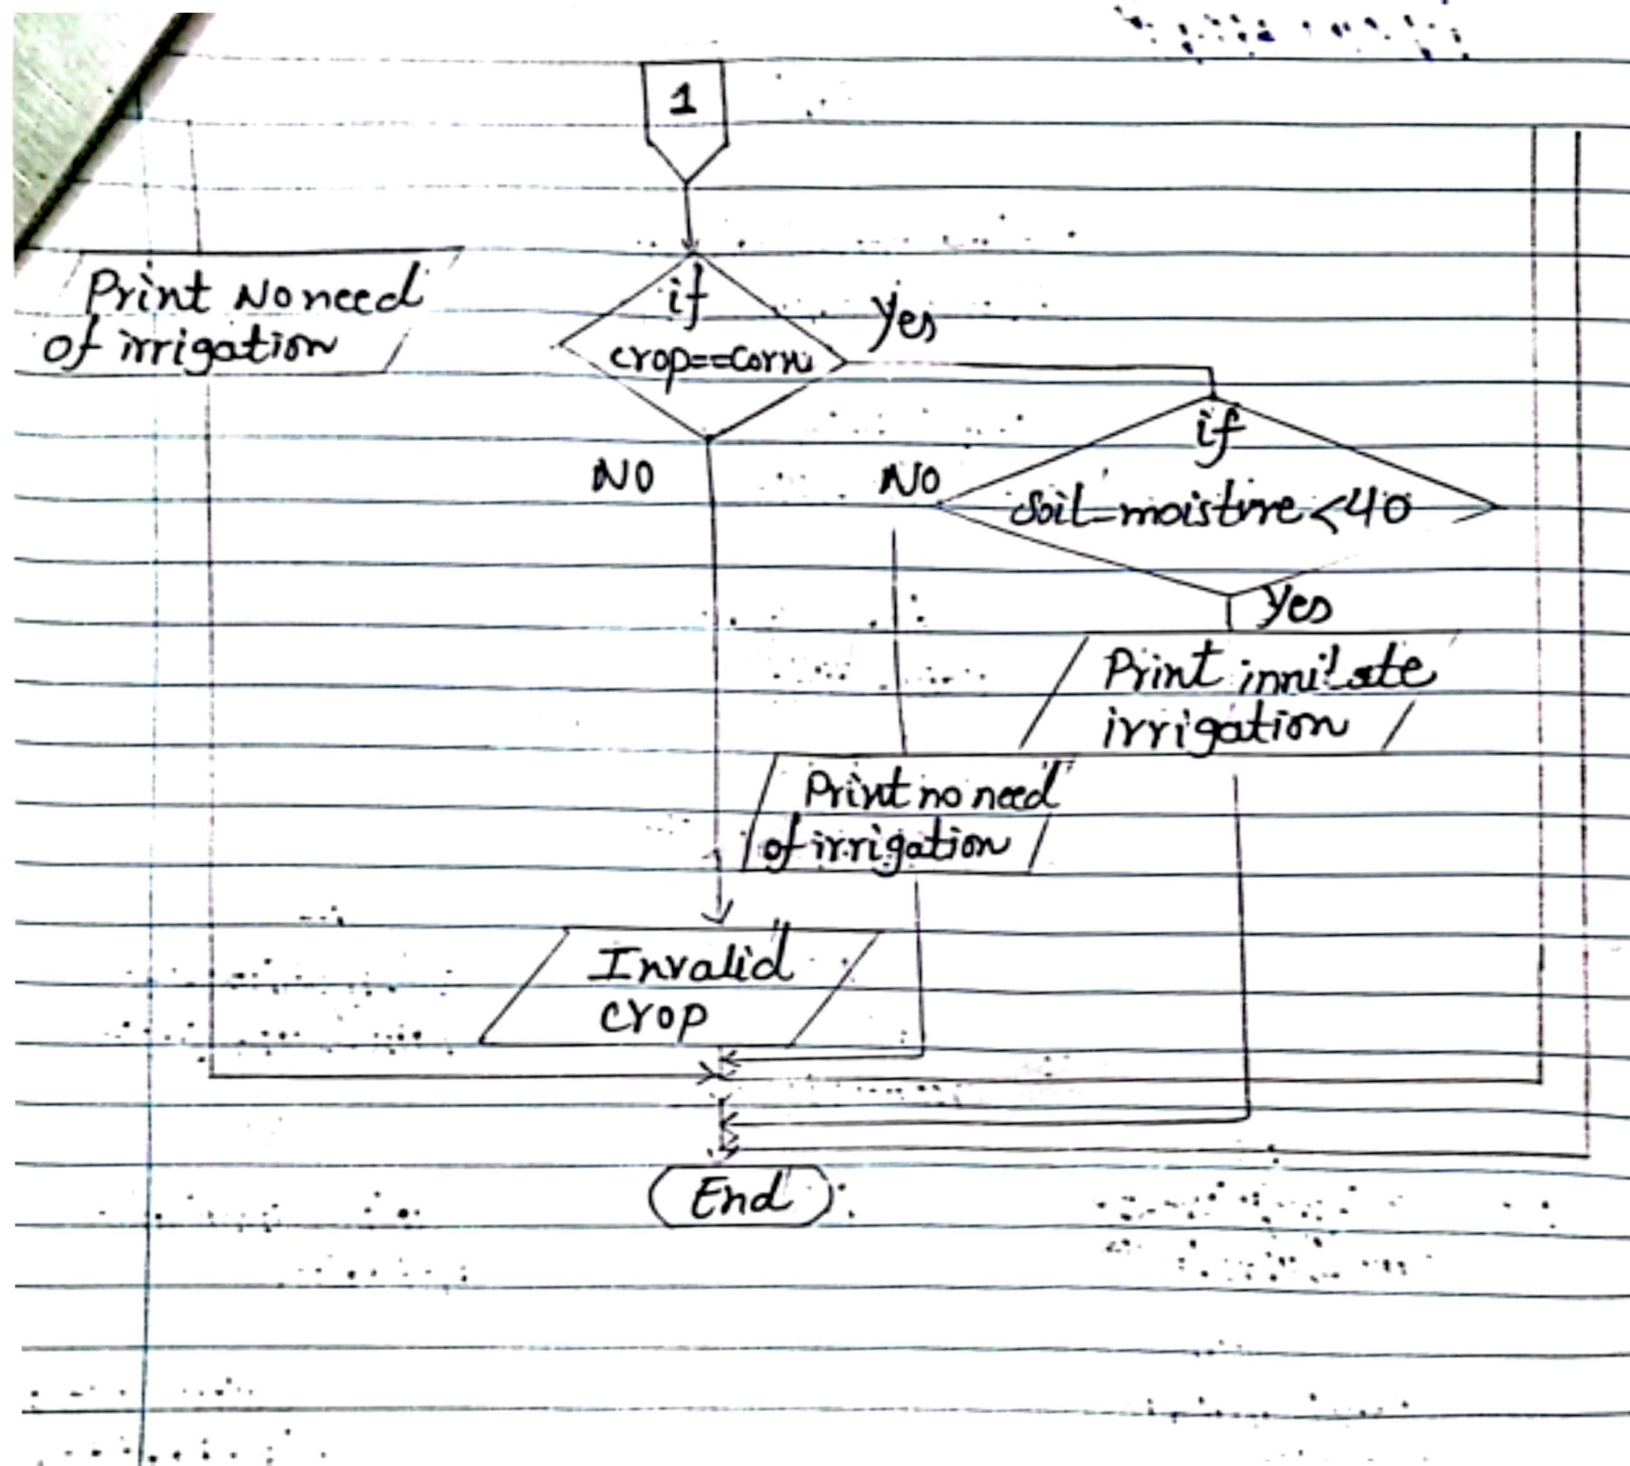 1
Print No need
of irrigation
if
crop==corn
Yes
NO
if
soil-moisture<40
NO
Yes
Print innitate
irrigation
Print no need
of irrigation
Invalid
crop
End